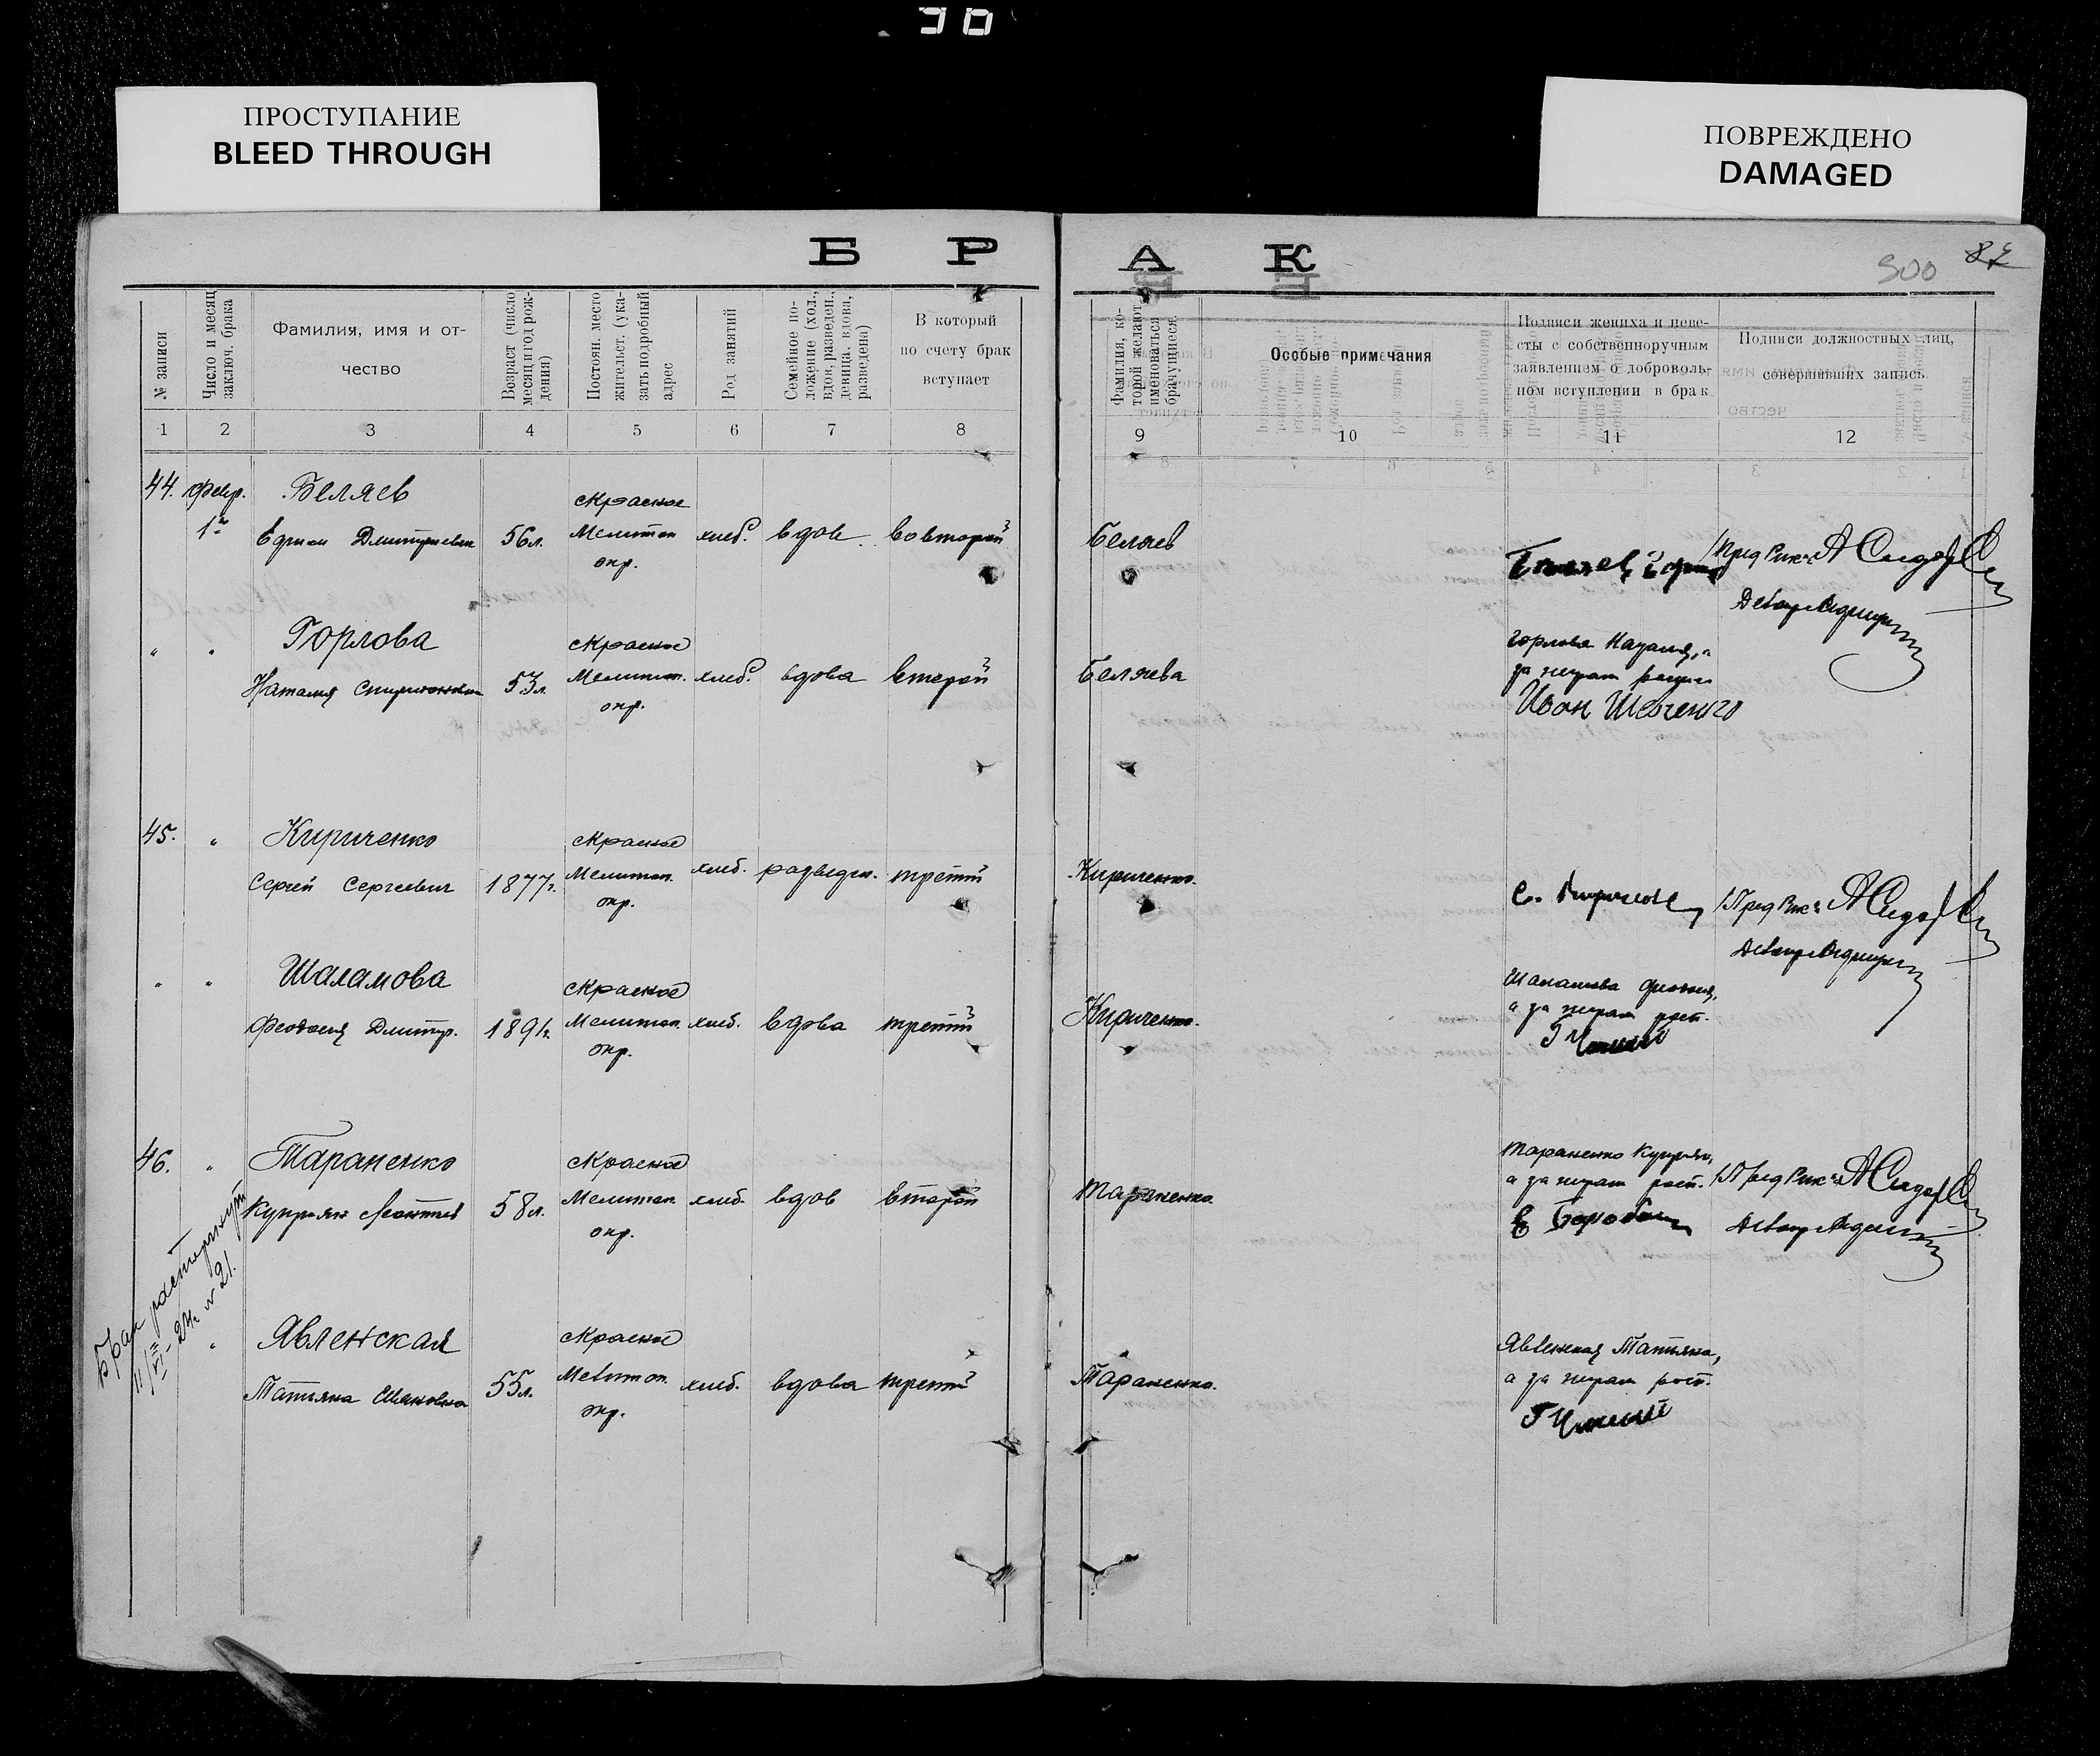 30
ПРОСТУПАНИЕ
BLEED THROUGH
ПОВРЕЖДЕНО
DAMAGED
Б Р А К
300 87
№ записи
Число и месяц
заключ. брака
Фамилия, имя и от-
чество
Возраст (число
месяц и год рож-
дения)
Постоян. место
жительст. (ука-
зать подробный
адрес
Род занятий
Семейное по-
ложение (хол.,
вдов, разведен.,
девица, вдова,
разведена)
В который
по счету брак
вступает
Фамилия, ко-
торой желают
именоваться
брачущиеся.
Особые примечания
Подписи жениха и неве-
сты с собственноручным
заявлением о доброволь-
ном вступлении в брак
Подписи должностных лиц,
совершивших запись.
1 2 3 4 5 6 7 8 9 10 11 12
44. февр. Беляев
с Красное
1го Ефим Дмитриевич 56л. Мелитоп хлеб. вдов во второй Беляев
окр.
Пред Рик'а АСидор
" " Горлова с Красное
Наталия 53л. Мелитоп. хлеб. вдова второй Беляева
окр.
Горлова Наталия, а
за неграм
Иван Шевченко
45. " Кириченко с Красное
Сергей Сергеевич 1877г. Мелитоп. хлеб. разведен. третий Кириченко.
окр.
С. Кириченко /Пред Рик'а АСидор
" " Шаламова с Красное
Феодосия Дмитр. 1891г. Мелитоп. хлеб. вдова третий Кириченко.
окр.
Шаламова
а за неграм расп.
46. " Тараненко с Красное
Куприян Леонтьев 58л. Мелитоп. хлеб. вдов второй Тараненко.
окр.
Тараненко Куприян,
а за неграм расп. /Пред Рик'а АСидор
Брак расторгнут
11/VI-24г. № 21.
" Явленская с Красное
Татьяна Ивановна 55л. Мелитоп. хлеб. вдова третий Тараненко.
окр.
Явленская Татьяна,
а за неграм расп.